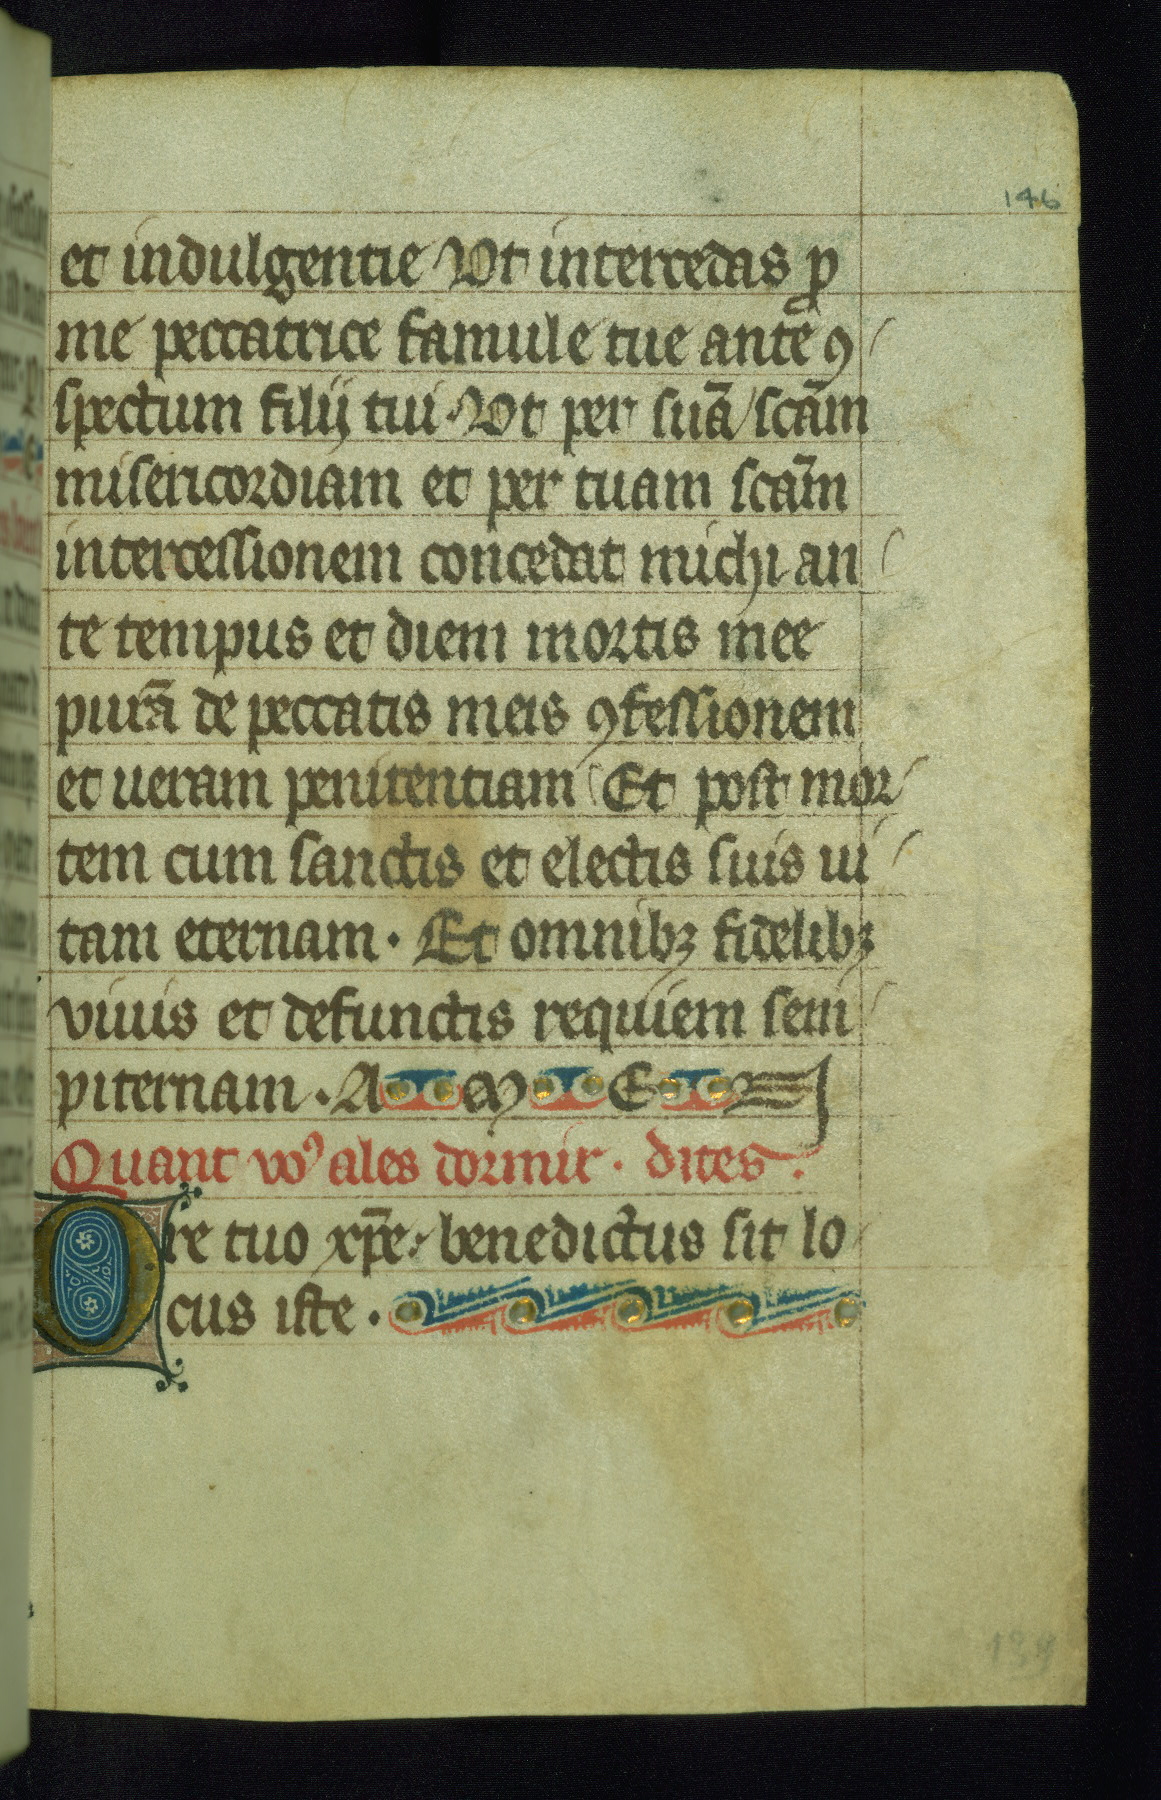 146
et indulgentie Vt intercedas ꝓ
me peccatrice famule tue ante ꝯ
spectum filij tui. Vt per suā scām
misericordiam et per tuam scām
intercessionem concedat michi an
te tempus et diem mortis mee
purā de peccatis meis ꝯfessionem
et ueram penitentiam Et post mor
tem cum sanctis et electis suis ui
tam eternam. Et omnibꝫ fidelibꝫ
viuis et defunctis requiem sem
piternam. A M E N
Quant voꝰ ales dormir. dites.
Ore tuo xp̄e. benedictus sit lo
cus iste.